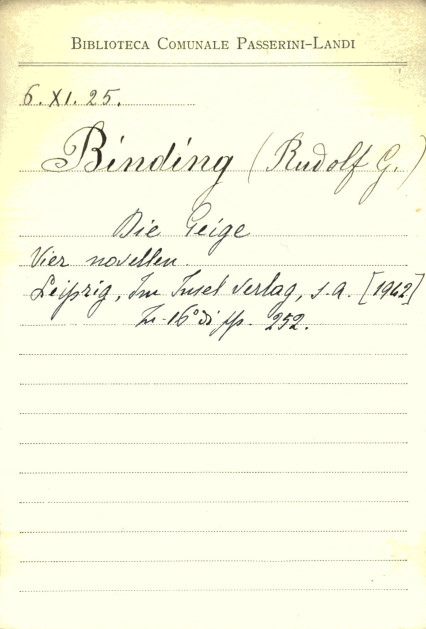 BIBLIOTECA COMUNALE PASSERINI-LANDI
6. XI. 25.
Binding (Rudolf G.)
Die Geige
Vier novellen.
Leipzig, Im Insel Verlag, s.a. [1942]
In-16° di pp. 252.